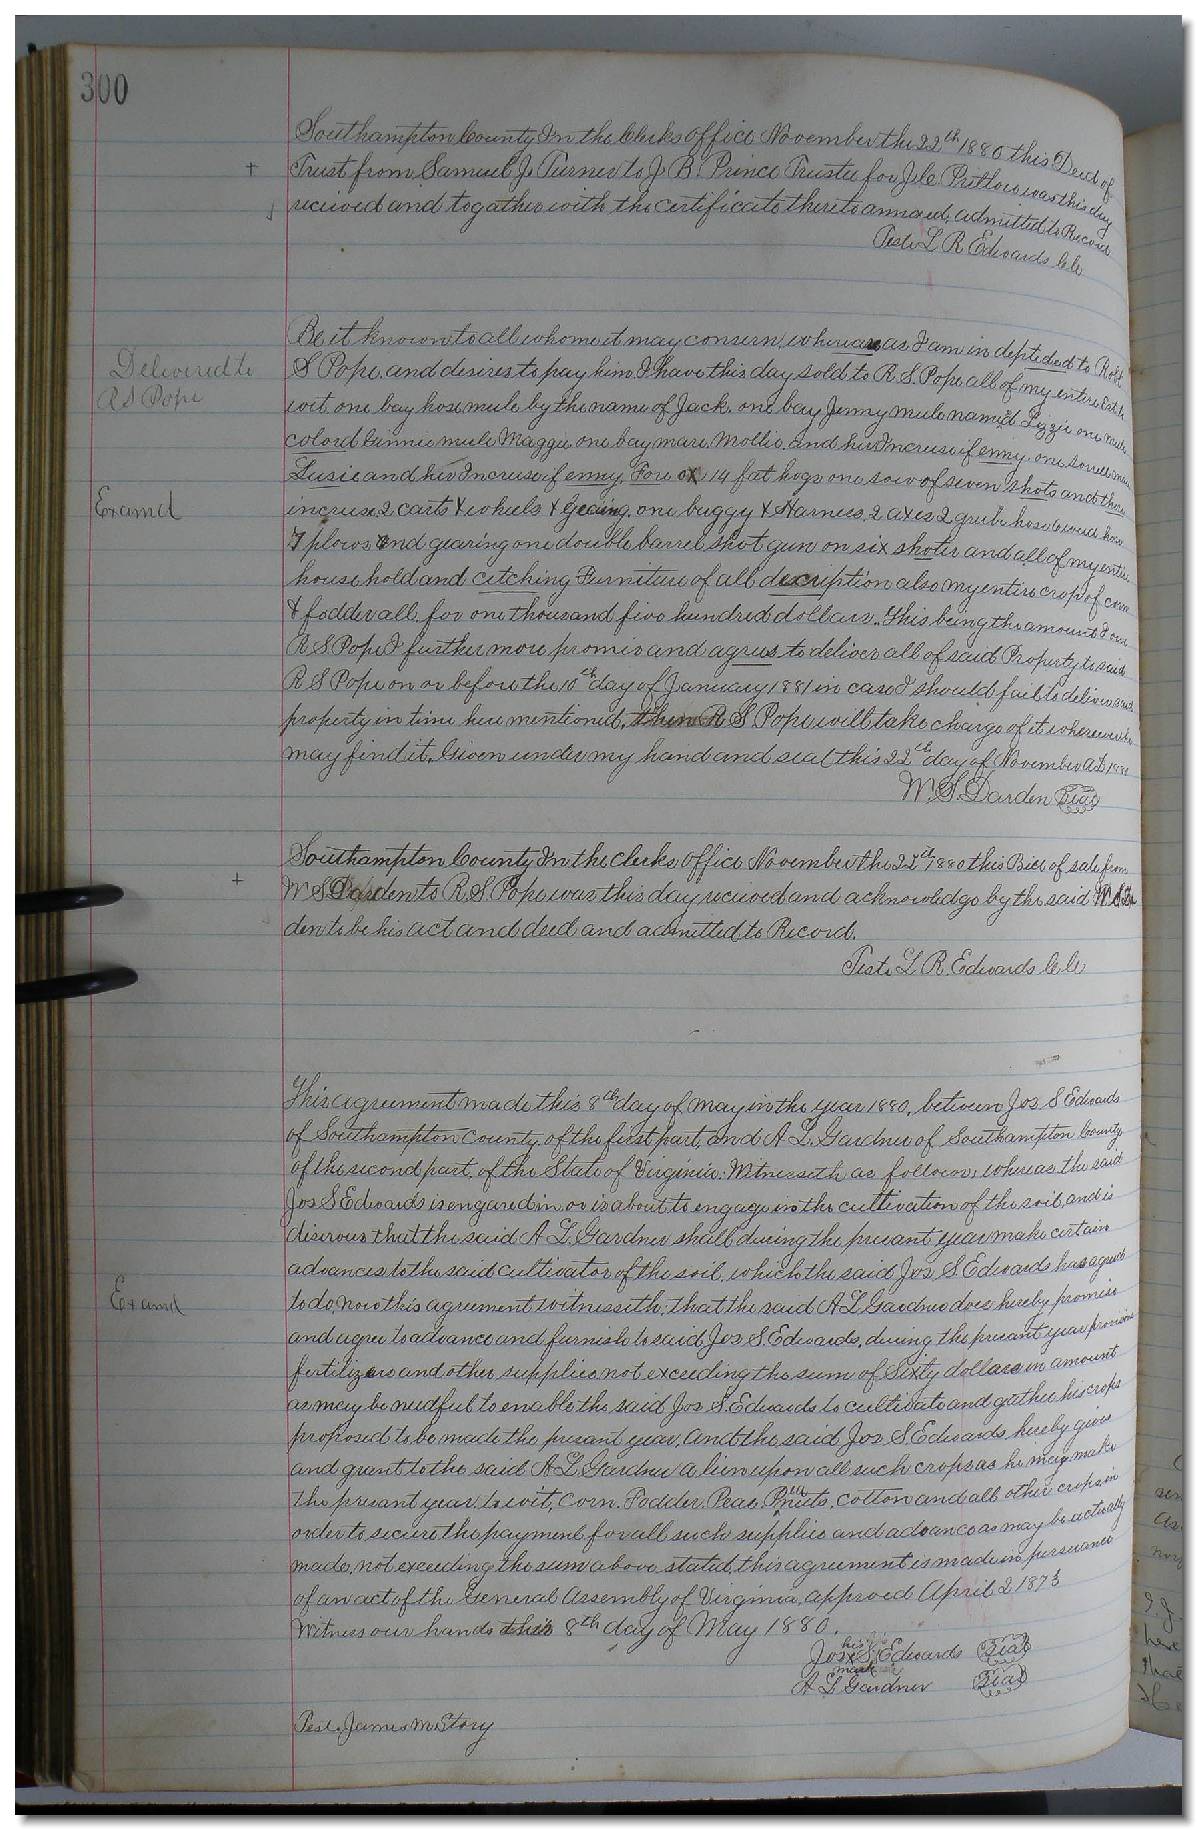 300
Southampton County In the Clerks office November the 22th 1880 this Deed of
Trust from Samuel J. Turner to J. B. Prince Trustee for J.C. Pretlow was this day
received and togather with the certificate thereto annexed, admitted to Record
Teste L R Edwards CC
Delivered to
R S Pope
Be it known to all whome it may consern, whereas as I am in depteded to Robt
S Pope, and desires to pay him I have this day sold to R. S. Pope all of my entire
wit one bay hose mule by the name of Jack, one bay Jenny mule named Lizzie one
colord mule Maggie, one bay mare Mollie, and her Increse if enny, one sorrell
Susie and her Increse if enny, Fore ox 14 fat hogs one sow of seven shots and there
Examd
increse 2 carts & wheels & Gearing, one buggy & Harness, 2 axes 2 grube hose
7 plows and gearing one double barrel shot gun on six shoter and all of my entire
household and citching Furniture of all description also my entire crop of corn
& fodder all for one thousand five hundred dollars. This being the amount I owe
R S Pope I further more promis and agrees to deliver all of said Property to said
R S Pope on or before the 10th day of January 1881 in case I should fail to deliver said
property in time here mentioned, then R S. Pope will take charge of it wherever he
may find it. Given under my hand and seal this 22th day of November AD 1880
W. S. Darden Seal
Southampton County In the Clerks office November the 22th 1880 this Bill of sale from
W S Darden to R S Pope was this day received and acknowledge by the said W S Dar
den to be his act and deed and admitted to Record.
Teste L R Edwards CC
This agreement made this 8th day of May in the year 1880, between Jos S Edwards
of Southampton County, of the first part, and A L Gardner of Southampton County
of the second part, of the State of Virginia: Witnesseth as follows: whereas the said
Jos S Edwards is engared in or is about to engage in the cultivation of the soil, and is
disirous that the said A L Gardner shall during the presant year make certain
advances to the said cultivator of the soil, which the said Jos S Edwards has agreed
Examd
to do, now this agreement witnesseth: that the said A L Gardner does hereby promise
and agree to advance and furnish to said Jos S. Edwards, during the presant year provisions
fertilizers and other supplies not exceeding the sum of Sixty dollars in amount
as may be needful to enable the said Jos S. Edwards to cultivate and gather his crops
proposed to be made the present year, And the said Jos S Edwards, hereby gives
and grant to the said A L Gardner a lien upon all such crops as he may make
The present year, to wit, Corn, Fodder, Peas, cotton and all other crops in
order to secure the payment for all such supplies and advances as may be actually
made, not exceeding the sum above stated, this agreement is made in persuance
of an act of the General Assembly of Virginia, approved April 2 1873
Witness our hands this 8th day of May 1880.
his
Jos X S. Edwards Seal
mark
A L Gardner Seal
Test. James M Story